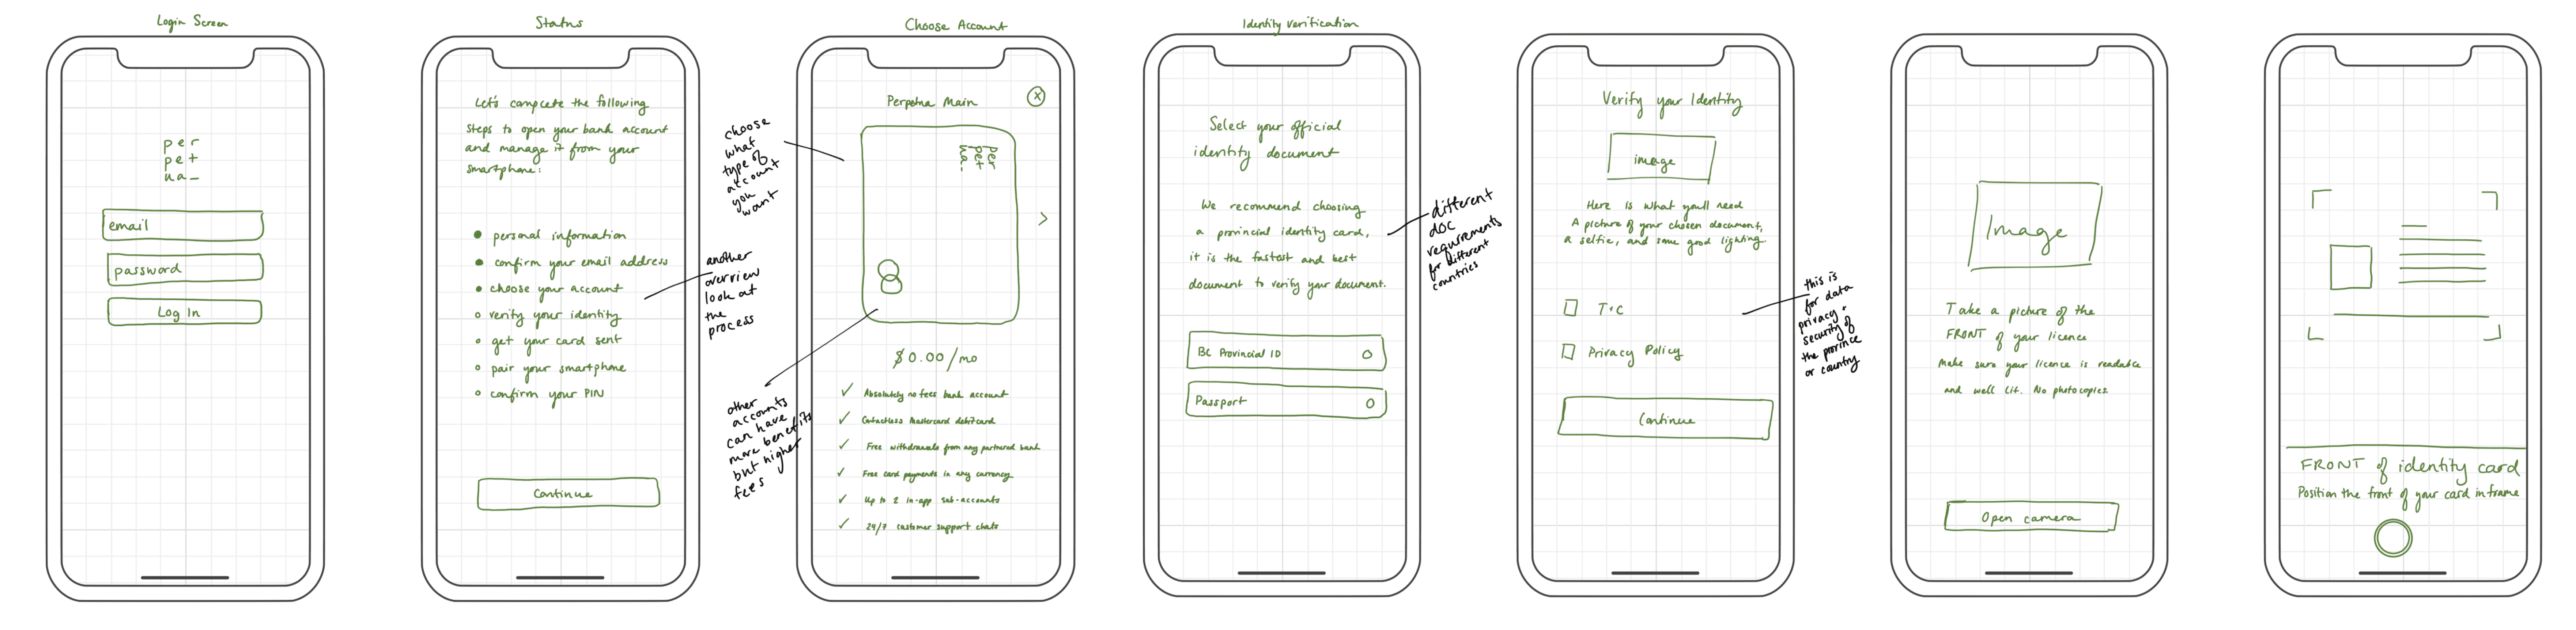 Login Screen
per
pet
ua_
email
password
Log In
Status
Let's complete the following
steps to open your bank account
and manage it from your
smartphone:
personal information
confirm your email address
choose your account
verify your identity
get your card sent
pair your smartphone
confirm your PIN
Continue
another
overview
look at
the
process
Choose Account
choose
what
type of
account
you
want
Perpetua Main
X
per
pet
ua_
>
$0.00/mo
other
accounts
can have
more benefits
but higher
fees
Absolutely no fees bank account
Contactless Mastercard debit card
Free withdrawals from any partnered bank
Free card payments in any currency
Up to 2 in-app sub-accounts
24/7 customer support chats
Identity Verification
Select your official
identity document
We recommend choosing
a provincial identity card,
it is the fastest and best
document to verify your document.
BC Provincial ID
Passport
different
doc
requirements
for different
countries
Verify your Identity
image
Here is what youll need
A picture of your chosen document,
a selfie, and some good lighting.
T+C
Privacy Policy
Continue
this is
for data
privacy +
security of
the province
or country
Image
Take a picture of the
FRONT of your licence
Make sure your licence is readable
and well lit. No photocopies.
Open camera
FRONT of identity card
Position the front of your card in frame